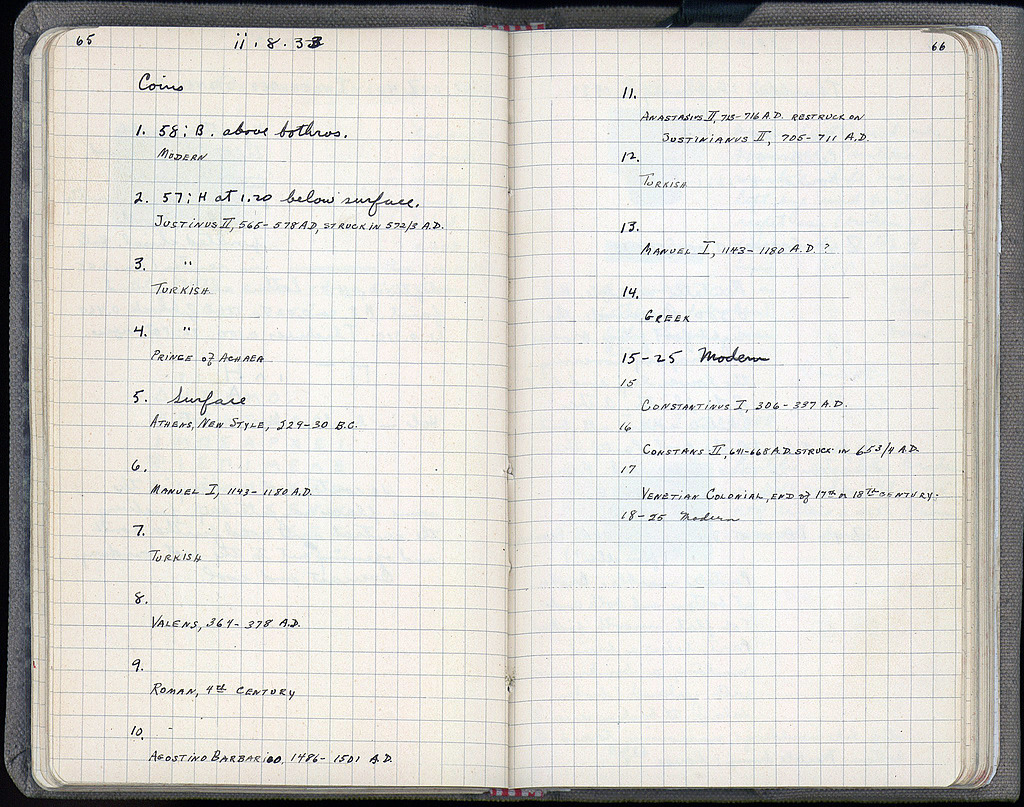 65
ii.8.33
Coins
1. 58; B. above bothros.
MODERN
2. 57; H at 1.20 below surface.
JUSTINUS II, 565-578 AD, STRUCK IN 572/3 A.D.
3. "
TURKISH
4. "
PRINCE of ACHAEA
5. Surface
ATHENS, NEW STYLE, 229-30 B.C.
6.
MANUEL I, 1143-1180 A.D.
7.
TURKISH
8.
VALENS, 364-378 A.D.
9.
ROMAN, 4th CENTURY
10.
AGOSTINO BARBARIGO, 1486-1501 A.D.
66
11.
ANASTASIUS II, 713-716 A.D. RESTRUCK ON
JUSTINIANUS II, 705-711 A.D.
12.
TURKISH
13.
MANUEL I, 1143-1180 A.D. ?
14.
GREEK
15-25 Modern
15
CONSTANTINUS I, 306-337 A.D.
16
CONSTANS II, 641-668 A.D. STRUCK IN 653/4 A.D.
17
VENETIAN COLONIAL, END of 17th or 18TH CENTURY.
18-25 Modern